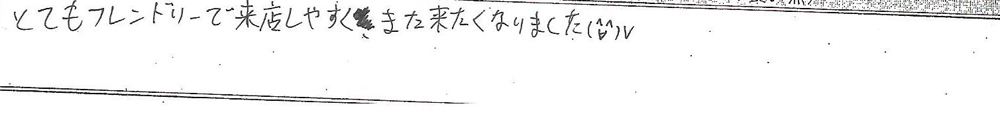 とてもフレンドリーで来店しやすくまた来たくなりました(^^)v